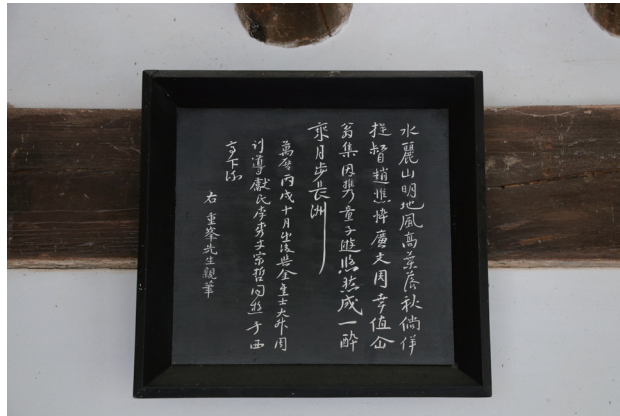 水麗山明地風高葉落秋倘佯
提督趙憔悴廣文周幸值仚
翁集因携童子遊悠然成一醉
乘月步長洲
萬曆丙戌十月 後與金 士大升周
訓導獻民李秀才宗哲同遊于西
亭下
右重峯先生親筆